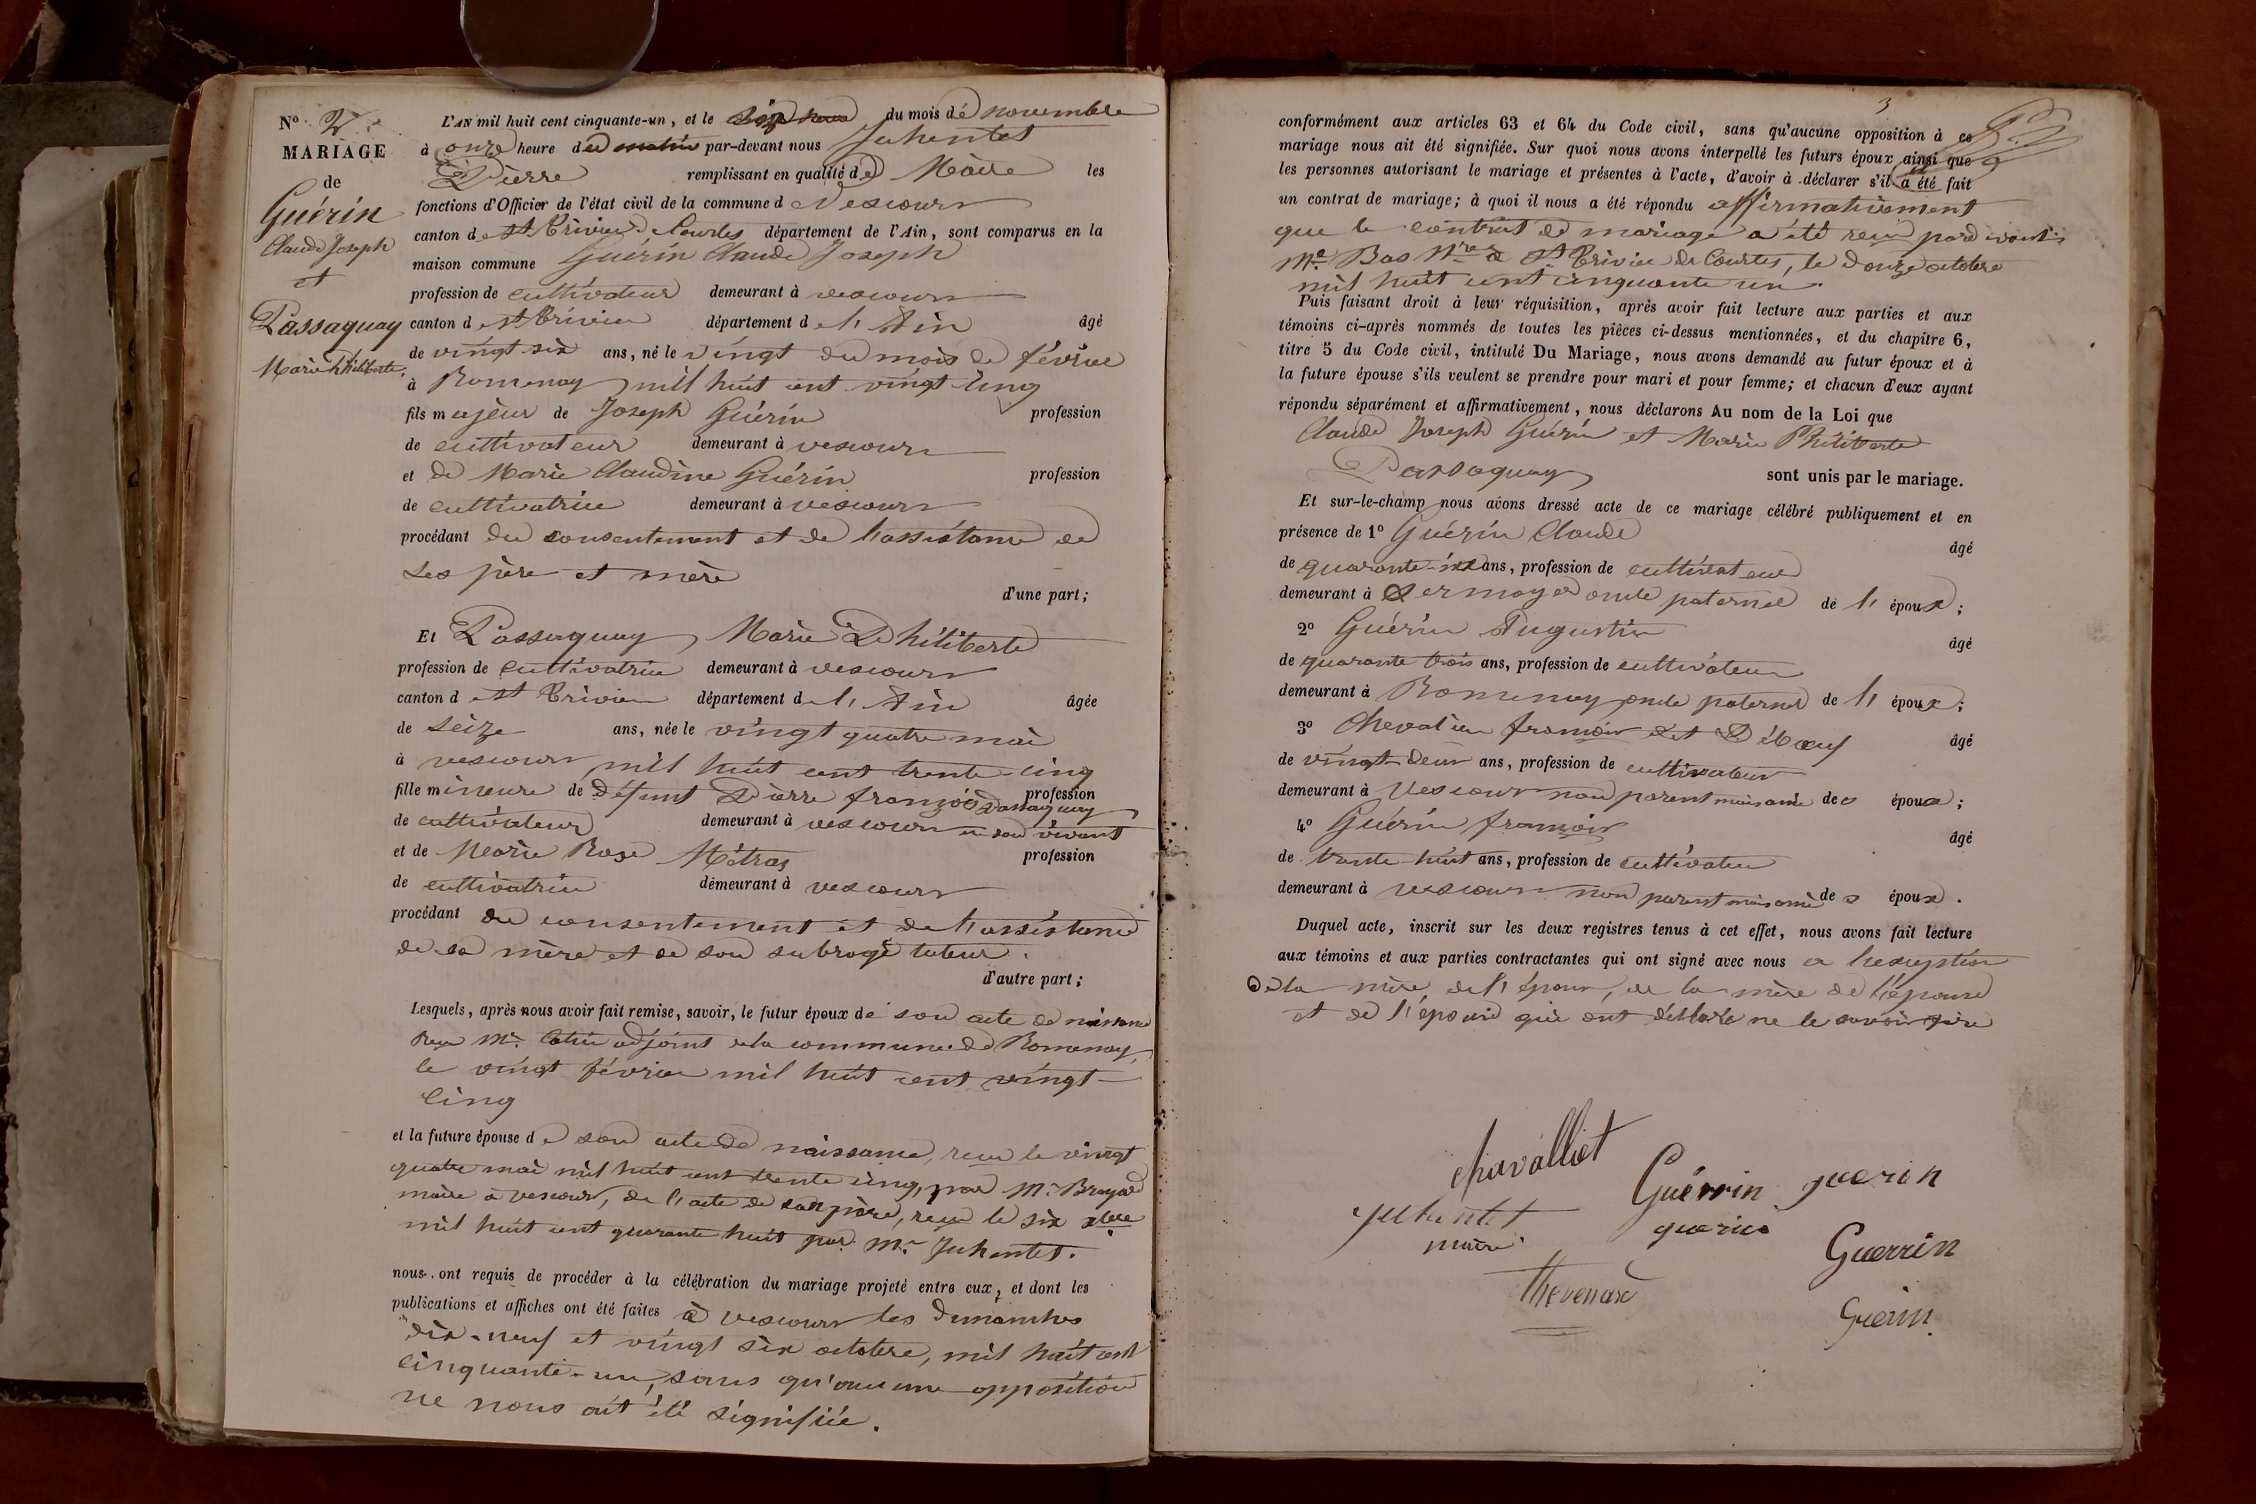 N° 2.
MARIAGE
de
Guérin
Claude Joseph
et
Passaquay
Marie Philiberte.
L'AN mil huit cent cinquante-un, et le du mois de novembre
à onze heure du matin par-devant nous Juhentet
Pierre remplissant en qualité de Maire les
fonctions d'Officier de l'état civil de la commune de Vescours
canton de St Trivier de Courtes département de l'Ain, sont comparus en la
maison commune Guérin Claude Joseph
profession de cultivateur demeurant à vescours
canton de St Trivier département de l'Ain âgé
de vingt six ans, né le vingt du mois de février
à Romenay mil huit cent vingt-cinq
fils majeur de Joseph Guérin profession
de cultivateur demeurant à vescours
et de Marie Claudine Guérin profession
de cultivatrice demeurant à vescours
procédant du consentement et de l'assistance de
ses père et mère
d'une part;
Et Passaquay Marie Philiberte
profession de cultivatrice demeurant à vescours
canton de St Trivier département de l'Ain âgée
de seize ans, née le vingt quatre mai
à vescours mil huit cent trente-cinq
fille mineure de défunt Pierre françois Passaquay profession
de cultivateur demeurant à vescours en son vivant
et de Marie Rose Métras profession
de cultivatrice demeurant à vescours
procédant du consentement et de l'assistance
de sa mère et de son subrogé tuteur.
d'autre part;
Lesquels, après nous avoir fait remise, savoir, le futur époux de son acte de naissance
Reçu Mr. adjoint de la commune de Romenay,
le vingt février mil huit cent vingt-
cinq
et la future épouse de son acte de naissance, reçu le vingt
quatre mai mil huit cent trente cinq, par Mr. Broyard
maire à vescours, de l'acte de son père, reçu le six xbre
mil huit cent quarante huit par Mr. Juhentet.
nous ont requis de procéder à la célébration du mariage projeté entre eux, et dont les
publications et affiches ont été faites à vescours les dimanches
dix-neuf et vingt six octobre, mil huit cent
cinquante-un, sans qu'aucune opposition
ne nous ait été signifiée.
3
conformément aux articles 63 et 64 du Code civil, sans qu'aucune opposition à ce
mariage nous ait été signifiée. Sur quoi nous avons interpellé les futurs époux ainsi que
les personnes autorisant le mariage et présentes à l'acte, d'avoir à déclarer s'il a été fait
un contrat de mariage; à quoi il nous a été répondu affirmativement
que le contrat de mariage a été reçu par devant
Me. Bas Nre à St Trivier de Courtes, le douze octobre
mil huit cent cinquante un.
Puis faisant droit à leur réquisition, après avoir fait lecture aux parties et aux
témoins ci-après nommés de toutes les pièces ci-dessus mentionnées, et du chapitre 6,
titre 5 du Code civil, intitulé Du Mariage, nous avons demandé au futur époux et à
la future épouse s'ils veulent se prendre pour mari et pour femme; et chacun d'eux ayant
répondu séparément et affirmativement, nous déclarons Au nom de la Loi que
Claude Joseph Guérin et Marie Philiberte
Passaquay sont unis par le mariage.
Et sur-le-champ nous avons dressé acte de ce mariage célébré publiquement et en
présence de 1° Guérin Claude âgé
de quarante-six ans, profession de cultivateur
demeurant à Sermoyer oncle paternel de l'époux;
2° Guérin Augustin âgé
de quarante trois ans, profession de cultivateur
demeurant à Romenay oncle paternel de l'époux;
3° Chevalier françois dit Débœuf âgé
de vingt-deux ans, profession de cultivateur
demeurant à Vescours non parent mais ami des époux;
4° Guérin françois âgé
de trente-huit ans, profession de cultivateur
demeurant à vescours non parent mais ami des époux.
Duquel acte, inscrit sur les deux registres tenus à cet effet, nous avons fait lecture
aux témoins et aux parties contractantes qui ont signé avec nous à l'exception
de la mère de l'époux, de la mère de l'épouse
et de l'épouse qui ont déclaré ne le savoir faire
chavalliet
Guérrin guerin
Juhentet
maire
guerin
Guerrin
thevenard
Guerin